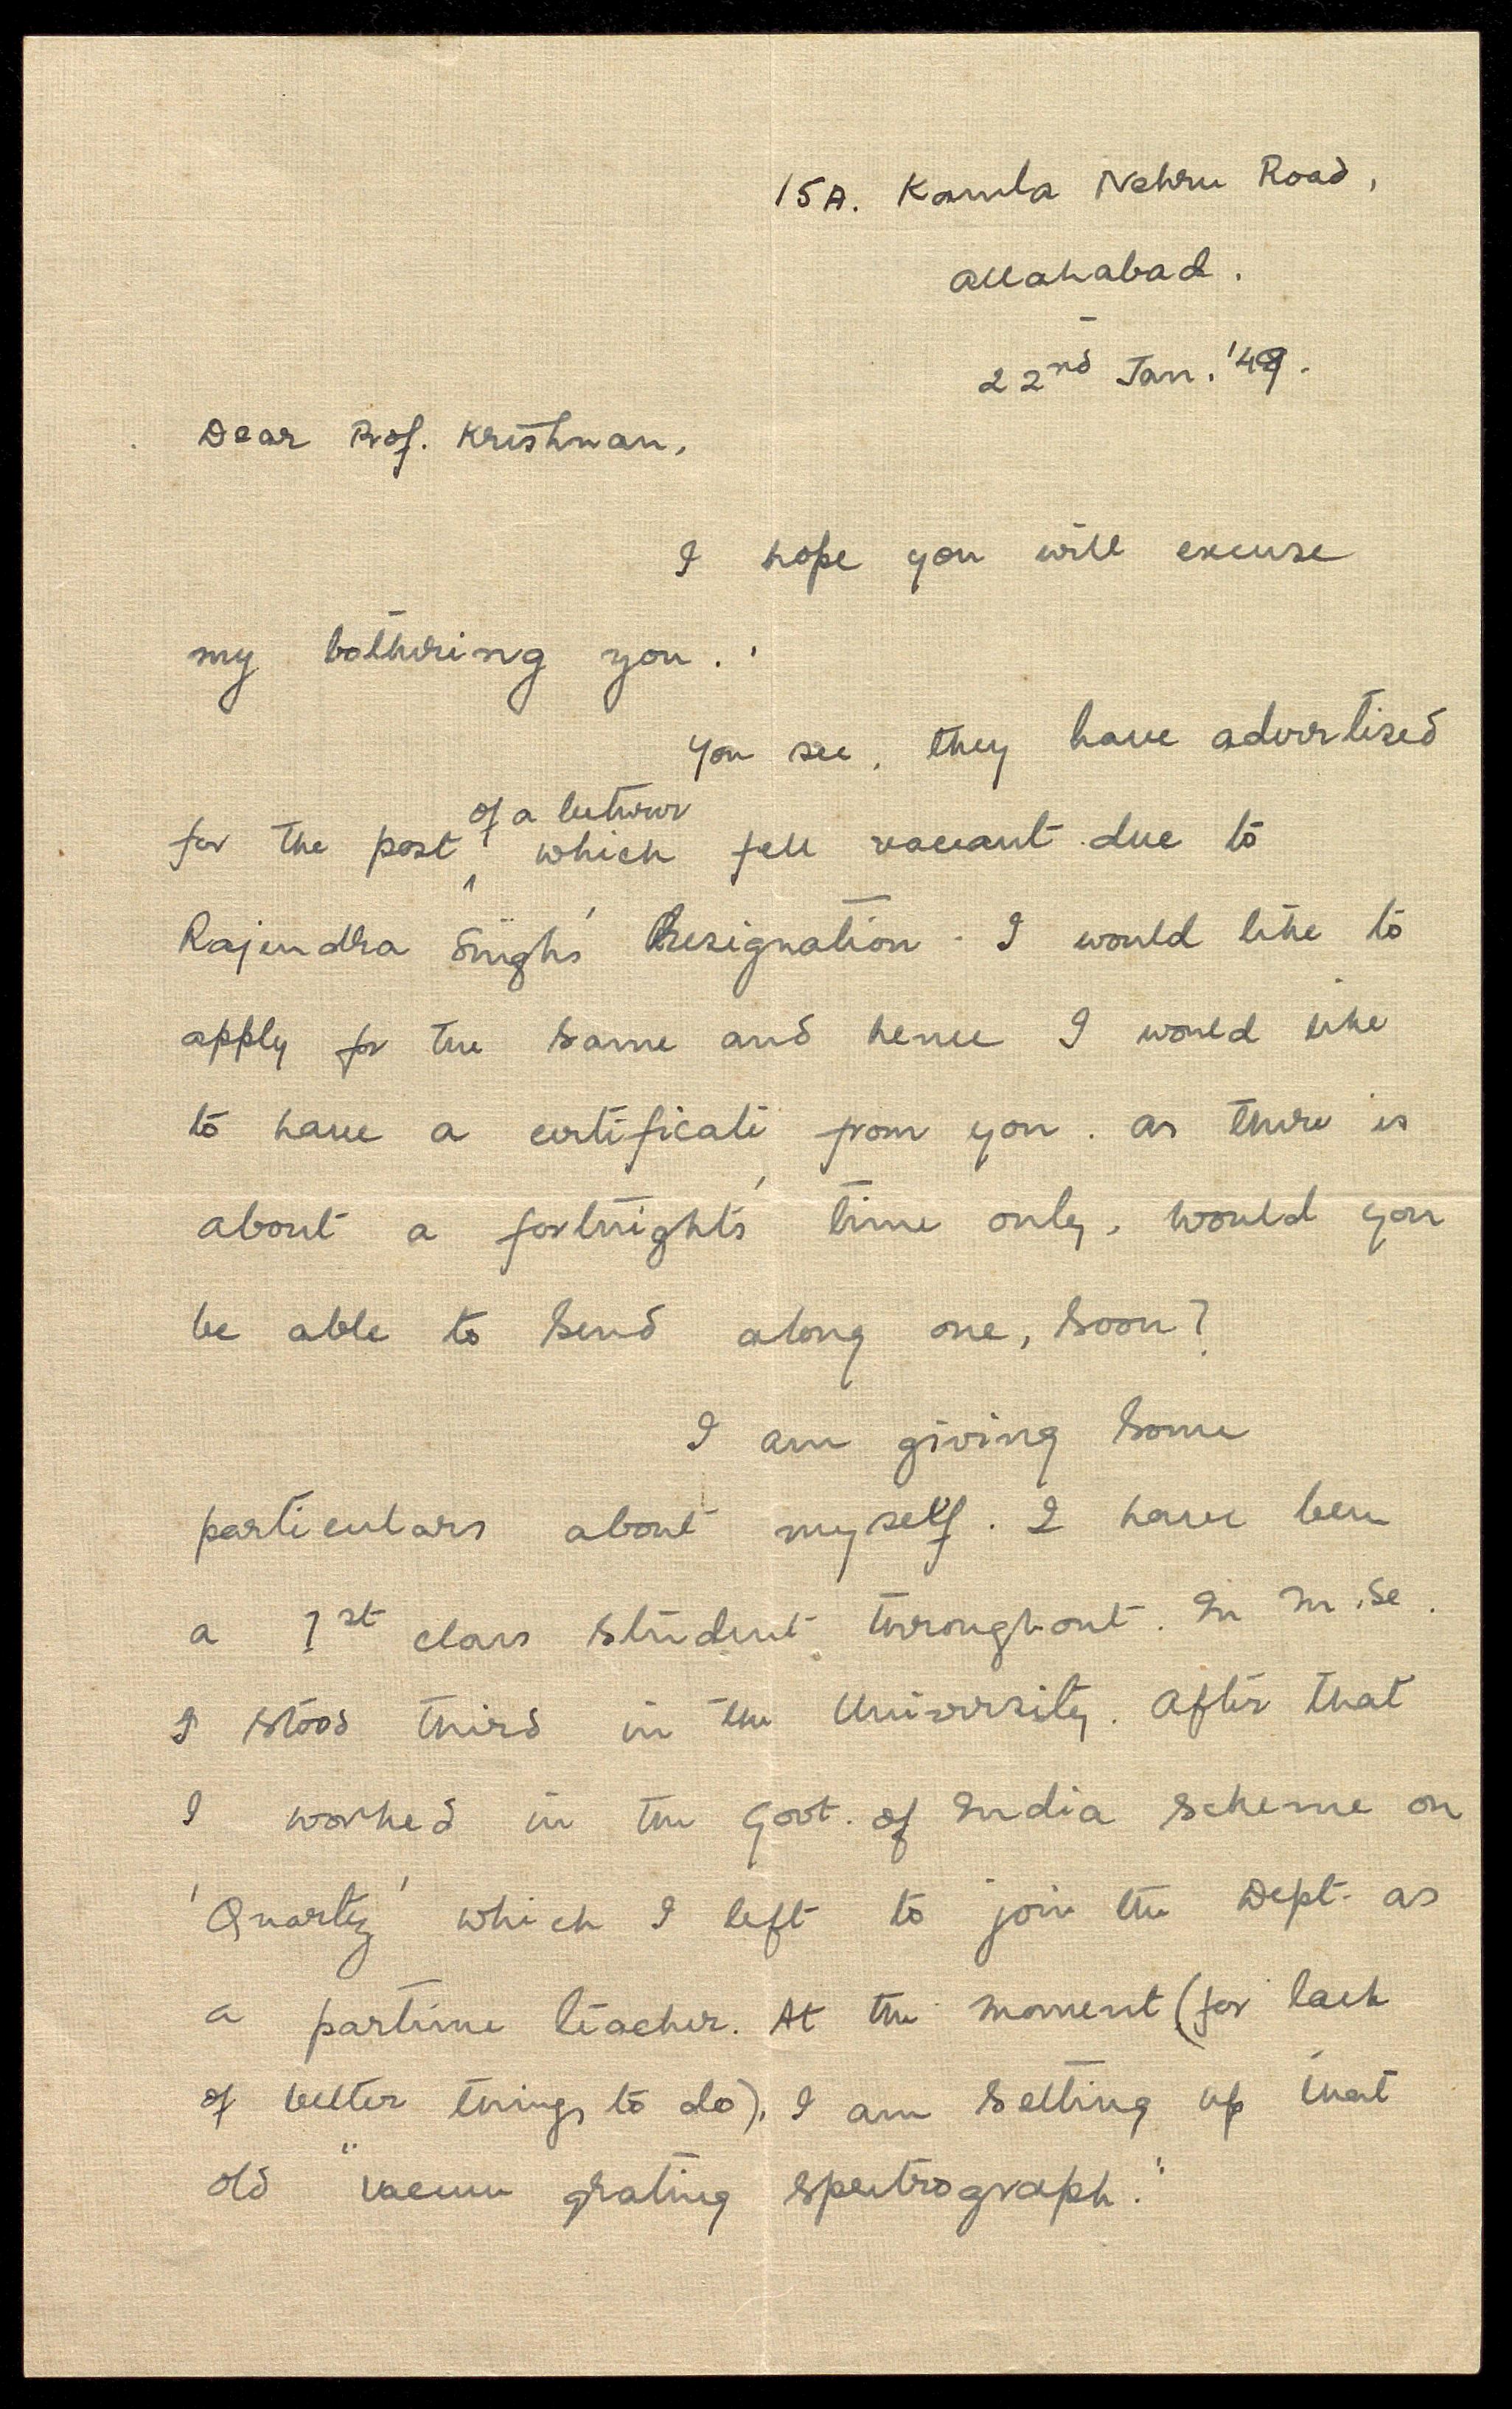 15A. Kamla Nehru Road,
Allahabad.
22nd Jan. '49.
Dear Prof. Krishnan,
I hope you will excuse
my bothering you.
You see, they have advertised
of a lecturer
for the post which fell vacant due to
Rajendra Singh's Resignation. I would like to
apply for the same and hence I would like
to have a certificate from you. As there is
about a fortnight's time only, would you
be able to send along one, soon?
I am giving some
particulars about myself. I have been
a 1st class student throughout. In M.Sc.
I stood third in the University. After that
I worked in the Govt. of India scheme on
'Quartz' which I left to join the Dept. as
a partime teacher. At the moment (for lack
of better things to do), I am setting up that
old "vacuum grating spectrograph."